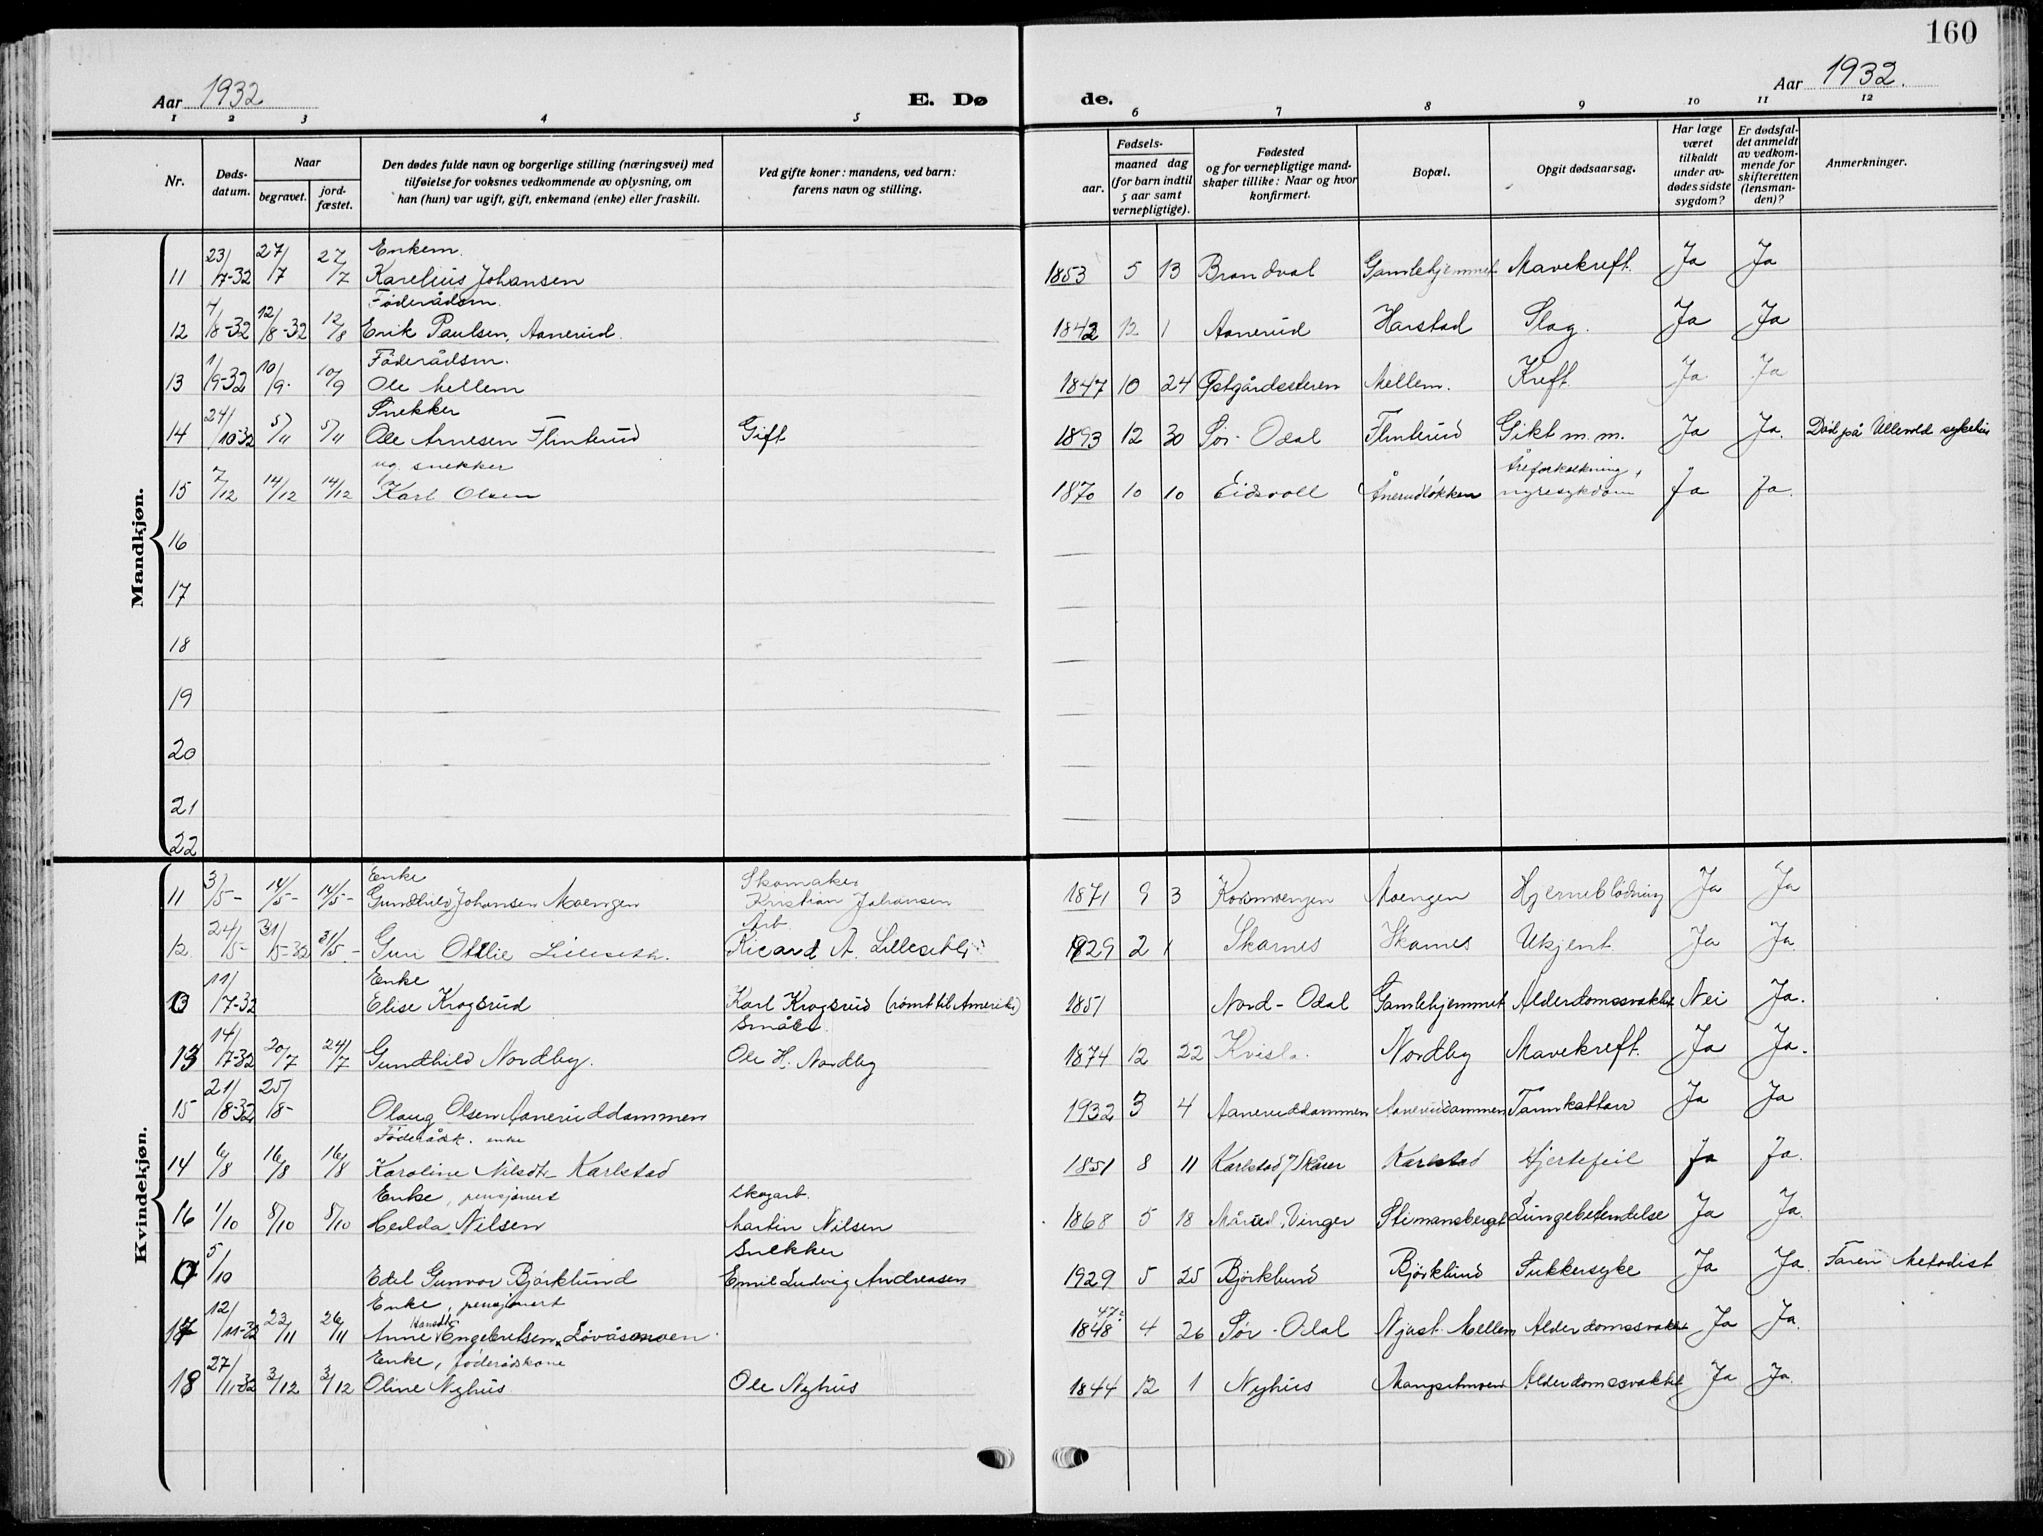 160
Aar 1932 E. Dø de. Aar 1932.
1 2 3 4 5 6 7 8 9 10 11 12
Nr. Døds-datum. Naar begravet. jord-fæstet. Den dødes fulde navn og borgerlige stilling (næringsvei) med tilføielse for voksnes vedkommende av oplysning, om han (hun) var ugift, gift, enkemand (enke) eller fraskilt. Ved gifte koner: mandens, ved barn: farens navn og stilling. Fødsels- aar. maaned dag (for barn indtil 5 aar samt vernepligtige). Fødested og for vernepligtige mand-skaper tillike: Naar og hvor konfirmert. Bopæl. Opgit dødsaarsag. Har læge været tilkaldt under av-dødes sidste sygdom? Er dødsfal-det anmeldt av vedkom-mende for skifteretten (lensman-den)? Anmerkninger.
Mandkjøn.
Enkem.
11 23/7-32 27/7 27/7 Karelius Johansen 1853 5 13 Brandval Gamlehjemmet Mavekreft. Ja Ja
Föderådsm.
12 4/8-32 12/8-32 12/8 Erik Paulsen, Aanerud. 1842 12 1 Aanerud Harstad Slag. Ja Ja
Föderådsm.
13 1/9-32 10/9. 10/9 Ole Mellem 1847 10 24 Østgårdseteren Mellem. Kreft. Ja Ja
Snekker
14 24/10-32 5/11 5/11 Ole Arnesen Flinterud Gift 1893 12 30 Sör-Odal Flinterud Gikt m.m. Ja Ja. Död på Ullevold sykehus
ug. snekker Åreforkalkning,
15 7/12 14/12 14/12 Karl Olsen 1870 10 10 Eidsvoll Ånerudløkken nyresykdom Ja Ja.
16
17
18
19
20
21
22
Kvindekjøn.
Enke Skomaker
11 3/5- 14/5- 14/5- Gundhild Johansen Moengen Kristian Johansen 1871 9 3 Korsmoengen Moengen Hjerneblödning Ja Ja
Arb.
12 24/5- 31/5-32 31/5- Guri Otilie Lilleseth. Ricard A. Lilleseth 1929 2 1 Skarnes Skarnes Ukjent Ja Ja
Enke
13 11/7-32 Elise Krogsrud Karl Krogsrud (römt til Amerika) 1851 Nord-Odal Gamlehjemmet Alderdomssvakhet Nei Ja.
Småbr.
13 14/7-32 20/7 24/7 Gundhild Nordby. Ole H. Nordby 1874 12 22 Kvisla. Nordby Mavekreft. Ja Ja.
15 21/8-32 25/8- Olaug Olsen Aaneruddammen 1932 3 4 Aaneruddammen Aaneruddammen Tarmkattarr Ja Ja
Föderådsk. enke
14 6/8 16/8 16/8 Karoline Nilsdt. Karlstad 1851 8 11 Karlstad, Skårer Karlstad Hjertefeil Ja Ja.
Enke, pensjonert Skogarb.
16 1/10 8/10 8/10 Hedda Nilsen Martin Nilsen 1868 5 18 Mårud, Vinger Stimansberget Lungebetendelse Ja Ja.
Snekker
0 5/10 Edel Gunvor Bjørklund Emil Ludvig Andreasen 1929 5 25 Björklund Bjørklund Sukkersyke Ja Ja. Faren Metodist
Enke, pensjonert 47?
17 12/11-32 22/11 26/11 Anne Hansdtr Engebretsen Lövåsmoen. 1848 4 26 Sör-Odal Njust. Mellem Alderdomssvakhet Ja Ja.
Enke, föderådskone
18 27/11-32 3/12 3/12 Oline Nyhus Ole Nyhus 1844 12 1 Nyhus Mangsetmoen Alderdomssvakhet Ja Ja.